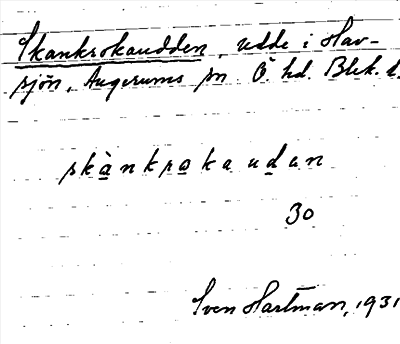 Skankrokaudden, udde i Hav-
sjön, Augerums sn Ö. hd. Blek. l.
skànkrokaudan
30
Sven Hartman, 1931